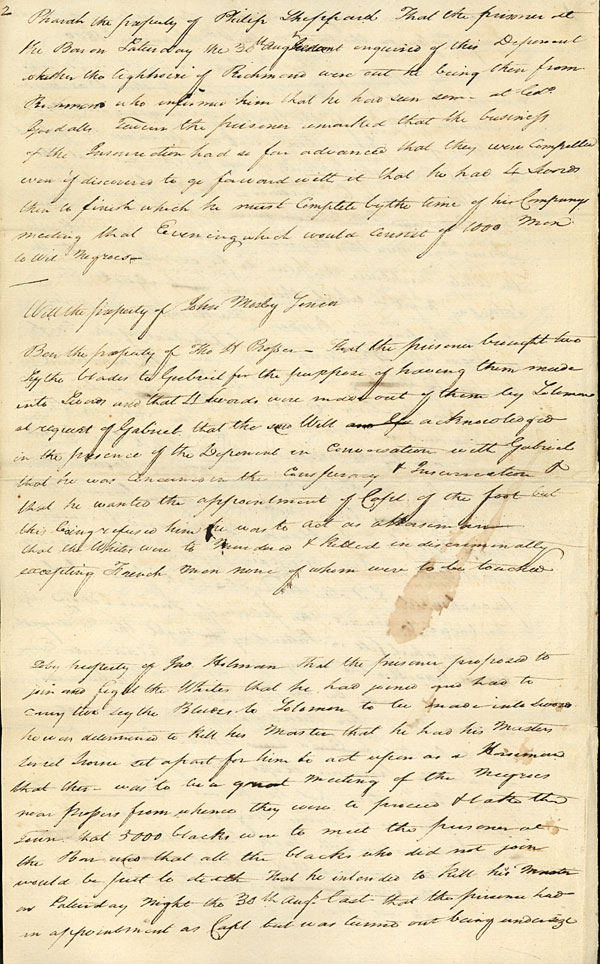 2
Pharah the property of Philip Sheppard That the prisoner at
the Bar on Saturday the 30th Augt enquired of this Deponent
whether the lighthorse of Richmond were out he being then from
Richmond who informed him that he had seen some at Col.
Goodalls Tavern the prisoner remarked that the business
of the Insurrection had so far advanced that they were compelled
even if discovered to go forward with it that he had 4 Swords
then to finish which he must complete by the time of his Company
meeting that Evening which would consist of 1000 Men
to wit Negroes —
Will the property of John Mosby Senior
Ben the property of Tho H Prosser — That the prisoner brought two
Sythe blades to Gabriel for the purpose of having them made
into Swords and that 4 swords were made out of them by Solomon
at request of Gabriel that the said Will acknowledged
in the presence of the Deponent in Conversation with Gabriel
that he was concerned in the Conspiracy & Insurrection &
that he wanted the appointment of Capt. of the foot but
this being refused him he was to act as a Horseman
that the Whites were to Murdered & killed indiscriminately
excepting French Men none of whom were to be touched
property of Jno. Holman that the prisoner proposed to
join and fight the Whites that he had joined and had to
carry two scythe Blades to Solomon to be made into Swords
he was determined to kill his Master that he had his Masters
sorrel Horse set apart for him to act upon as a Horseman
that there was to be a great Meeting of the Negroes
near Prossers from whence they were to proceed & take the
Town that 5000 blacks were to meet the prisoner at
the Bar and that all the blacks who did not join
would be put to death that he intended to kill his Master
on Saturday Night the 30th Augt. last that the prisoner had
an appointment as Capt but was turned out being undersize